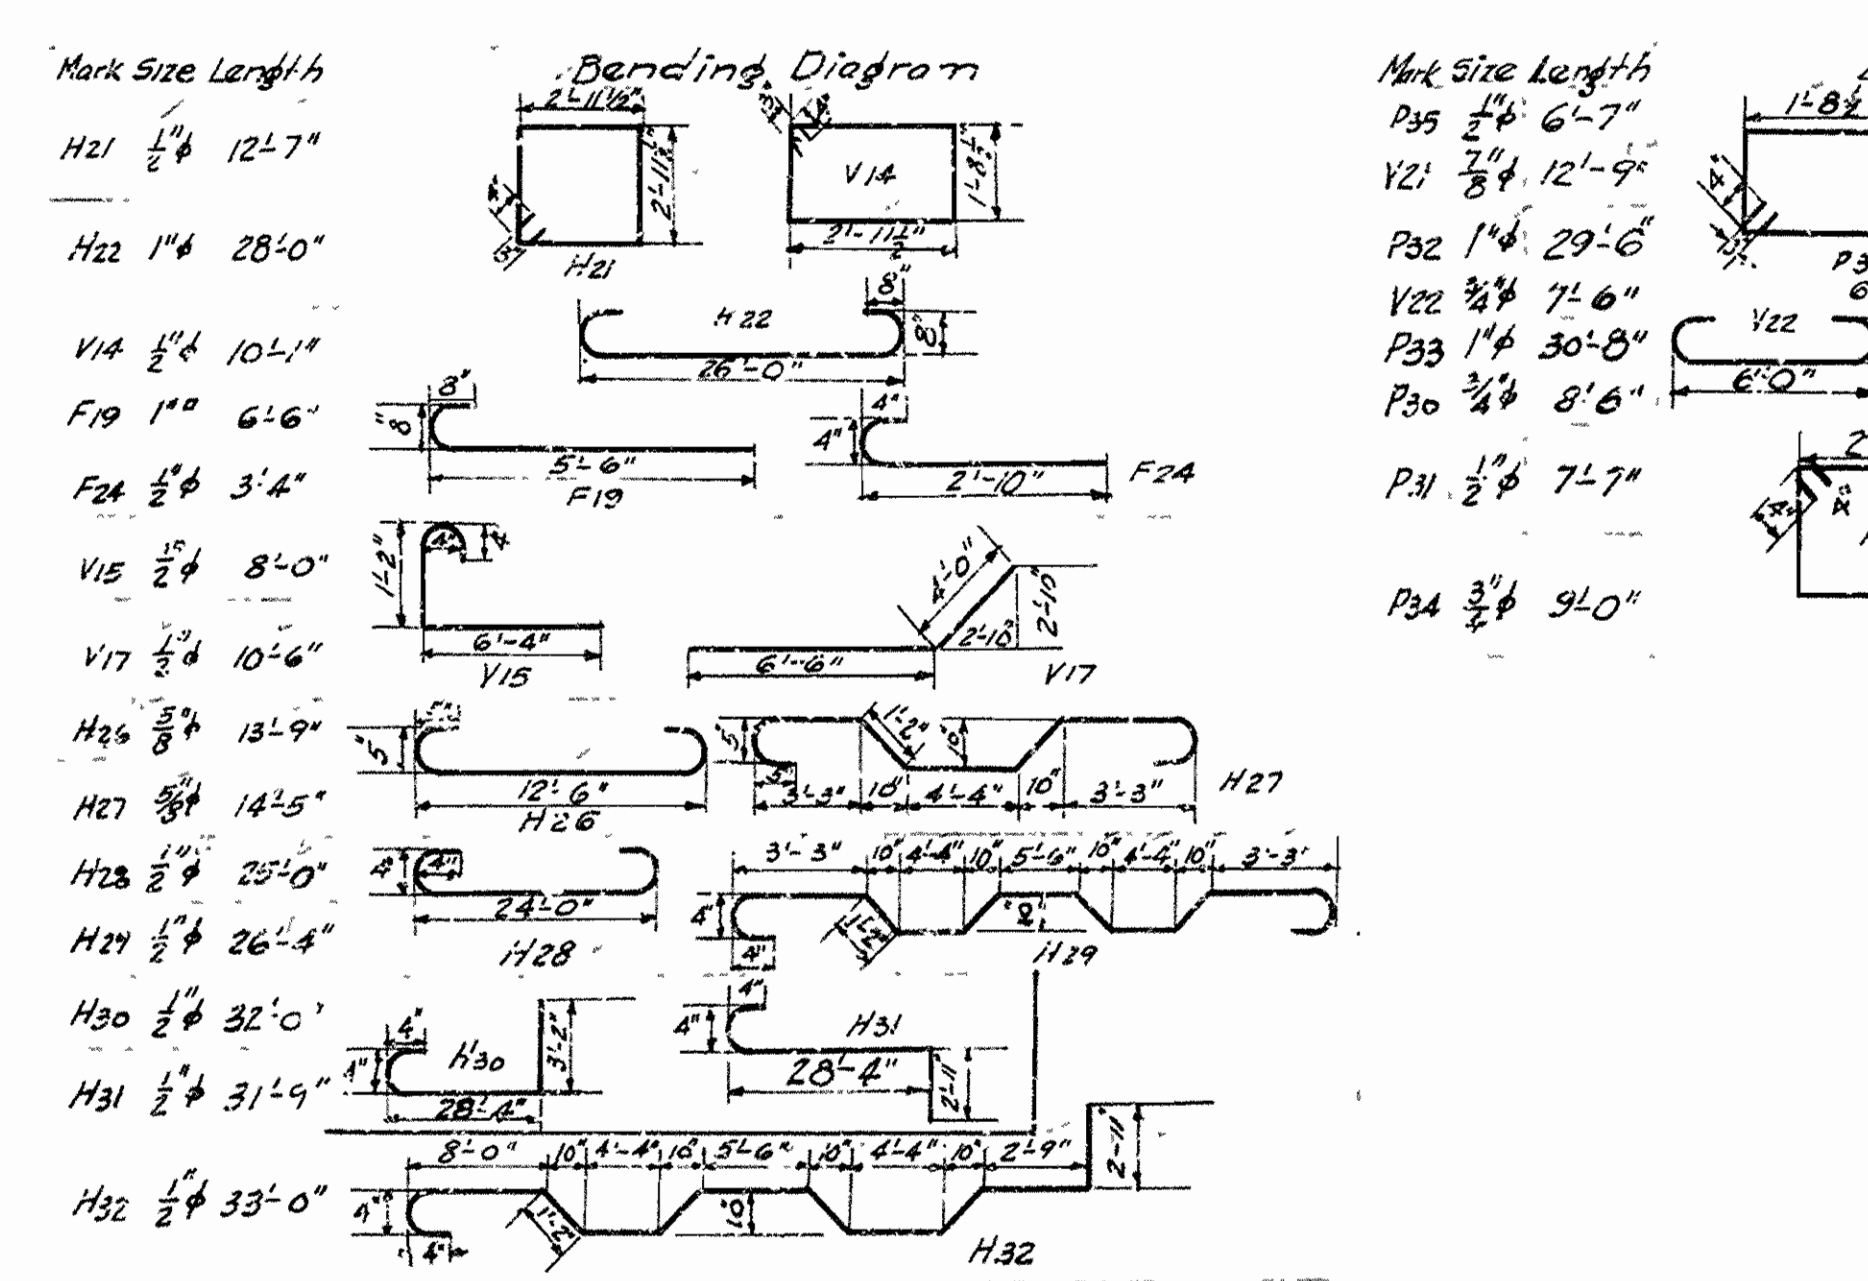 Bending Diagram
Mark Size Length
H21 1/2"ϕ 12'-7"
H22 1"ϕ 28'-0"
V14 1/2"ϕ 10'-1"
F19 1"▫ 6'-6"
F24 1/2"ϕ 3'-4"
V15 1/2"ϕ 8'-0"
V17 1/2"ϕ 10'-6"
H26 5/8"ϕ 13'-9"
H27 5/8"ϕ 14'-5"
H28 1/2"ϕ 25'-0"
H29 1/2"ϕ 26'-4"
H30 1/2"ϕ 32'-0"
H31 1/2"ϕ 31'-9"
H32 1/2"ϕ 33'-0"
2'-11 1/2"
2'-11 1/2"
4"
H21
V14
1'-8 1/2"
2'-11 1/2"
8"
H22
8"
26'-0"
8"
8"
5'-6"
F19
4"
4"
2'-10"
F24
1'-2"
4"
4"
6'-4"
V15
4'-0"
2'-10"
2'-10"
6'-6"
V17
5"
12'-6"
H26
5"
1'-2"
10"
5"
3'-3" 10" 4'-4" 10" 3'-3"
H27
4"
4"
24'-0"
H28
3'-3" 10" 4'-4" 10" 5'-6" 10" 4'-4" 10" 3'-3"
4"
1'-2"
4"
H29
4"
4"
H30
3'-2"
28'-4"
4"
4"
H31
28'-4"
2'-11"
8'-0" 10" 4'-4" 10" 5'-6" 10" 4'-4" 10" 2'-9"
2'-11"
4"
4"
1'-2"
10"
H32
Mark Size Length
P35 1/2"ϕ 6'-7"
V21 7/8"ϕ 12'-9"
P32 1"ϕ 29'-6"
V22 3/4"ϕ 7'-6"
P33 1"ϕ 30'-8"
P30 3/4"ϕ 8'-6"
P31 1/2"ϕ 7'-7"
P34 3/4"ϕ 9'-0"
1'-8 1/2
4"
V22
6'-0"
4"
4"